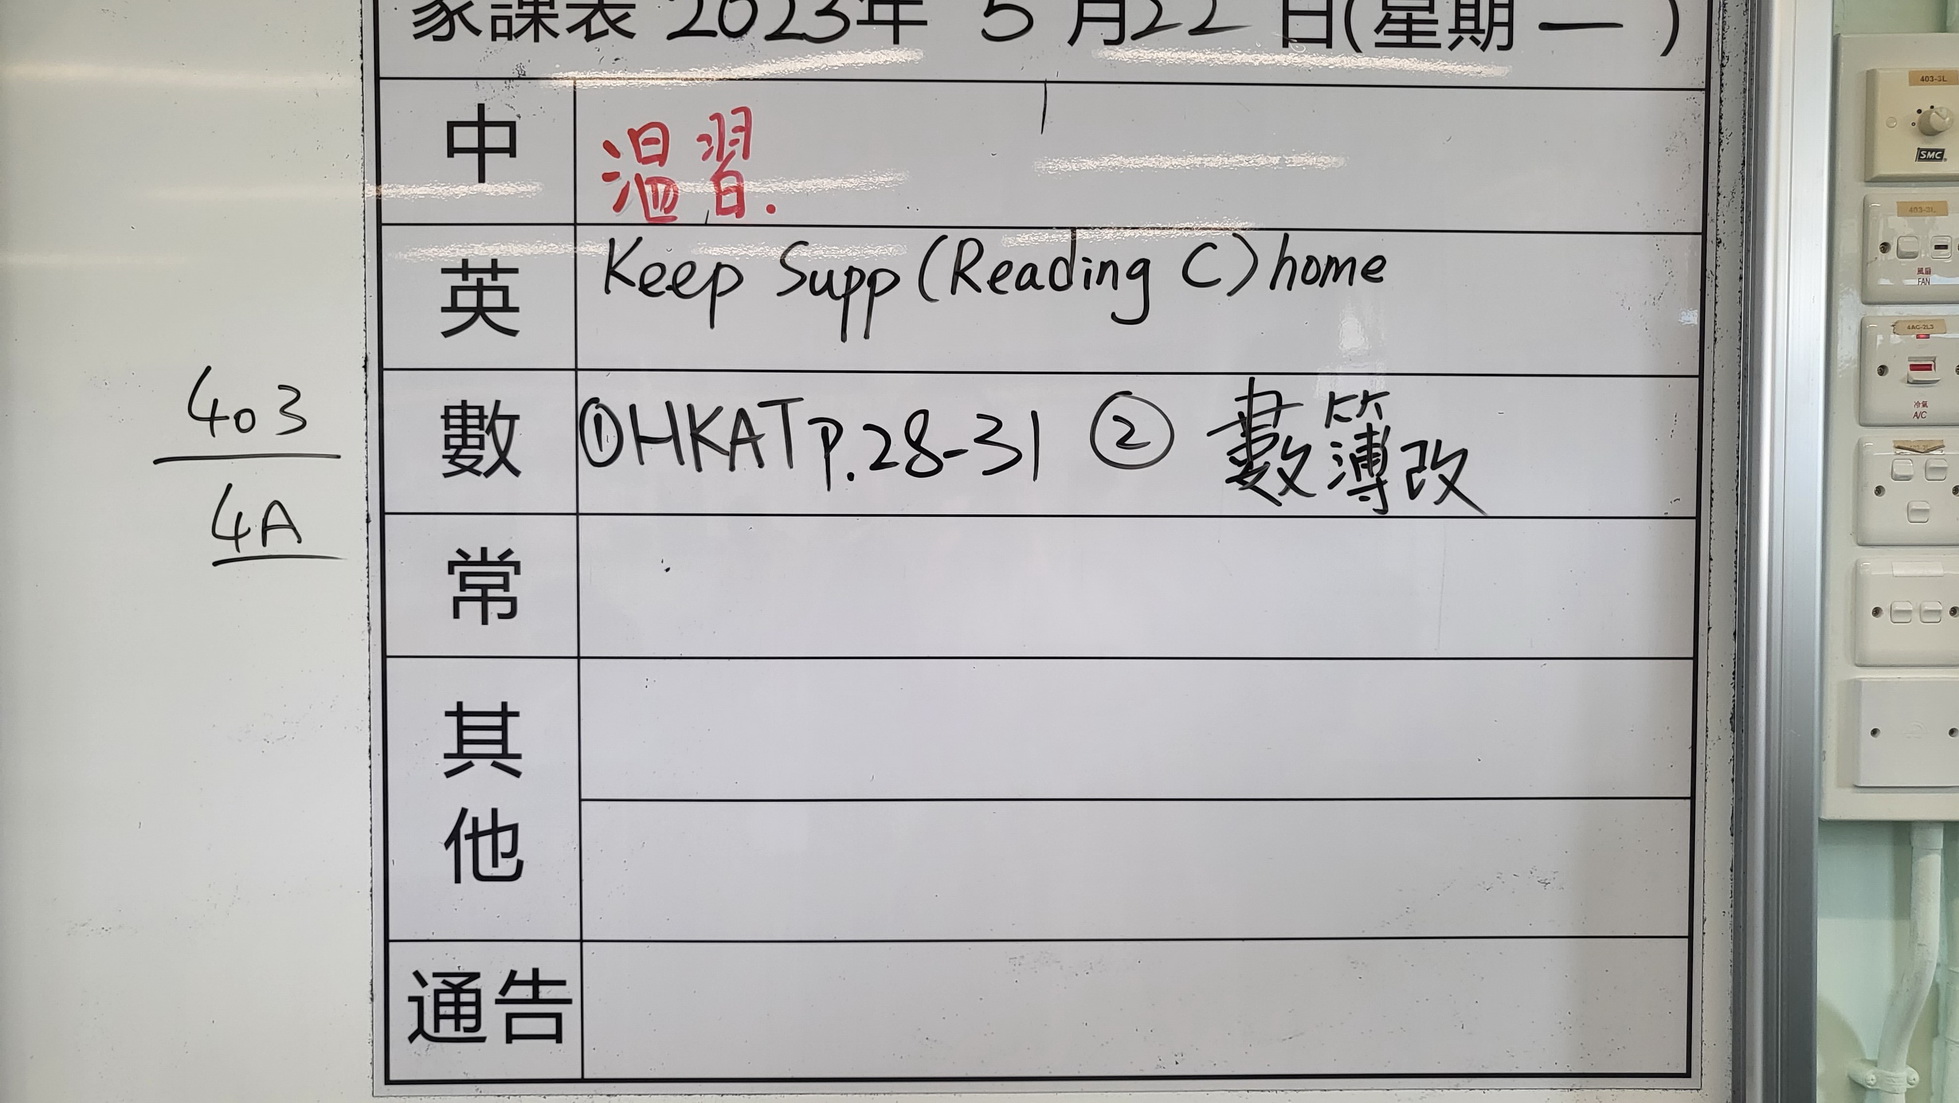 家課表 2023年 5 月22 日(星期一)
中 溫習.
英 Keep Supp (Reading C) home
數 ①HKAT p.28-31 ② 數簿改
403
4A
常
其他
通告
403-3L
SMC
403-3L
風扇
FAN
4AC-2L3
冷氣
A/C